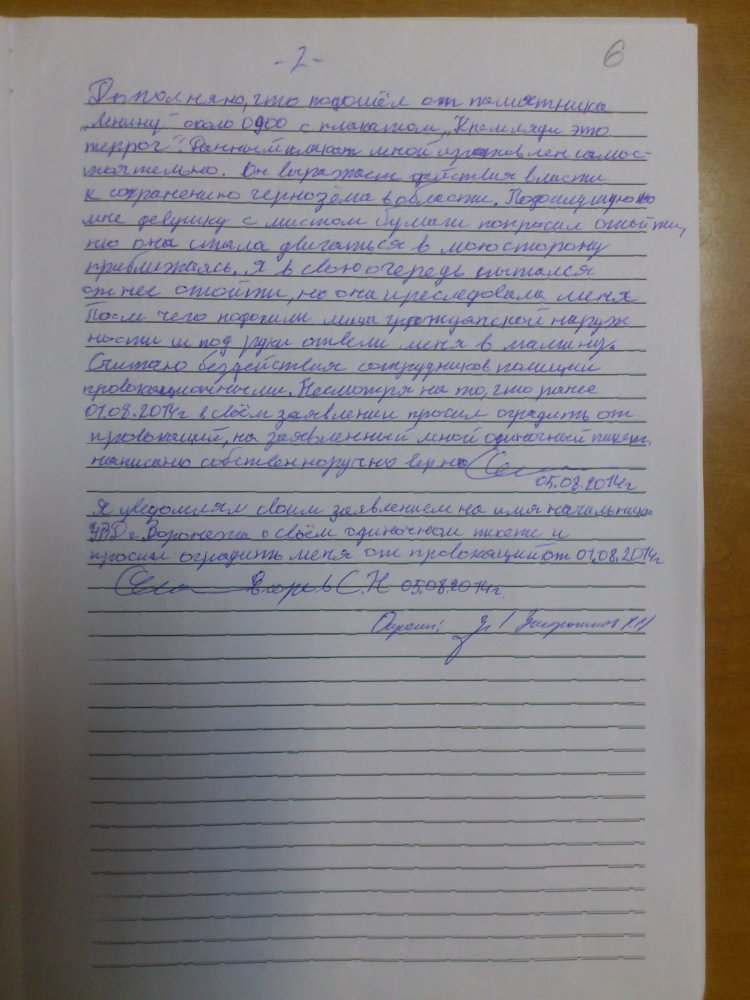 - 2 -
6
Дополняю, что подошёл от памятника
„Ленину" около 0900 с плакатом „Кремляди это
террор". Данный плакат мной изготовлен самос-
тоятельно. Он выражает действия власти
к сохранению чернозёма в области. Подошедшую ко
мне девушку с листом бумаги попросил отойти,
но она стала двигаться в мою сторону
приближаясь. Я в свою очередь пытался
от неё отойти, но она преследовала меня
После чего подошли лица гражданской наруж
ности и под руки отвели меня в машину.
Считаю бездействия сотрудников полиции
провокационными. Несмотря на то, что ранее
01.08.2014г в своём заявлении просил оградить от
провокаций, на заявленный мной одиночный пикет.
написано собственноручно верно
05.08.2014г
Я уведомлял своим заявлением на имя начальника
УВД г. Воронежа о своём одиночном пикете и
просил оградить меня от провокаций от 01.08.2014г
Егоров С.Н 05.08.2014г.
Опросил: